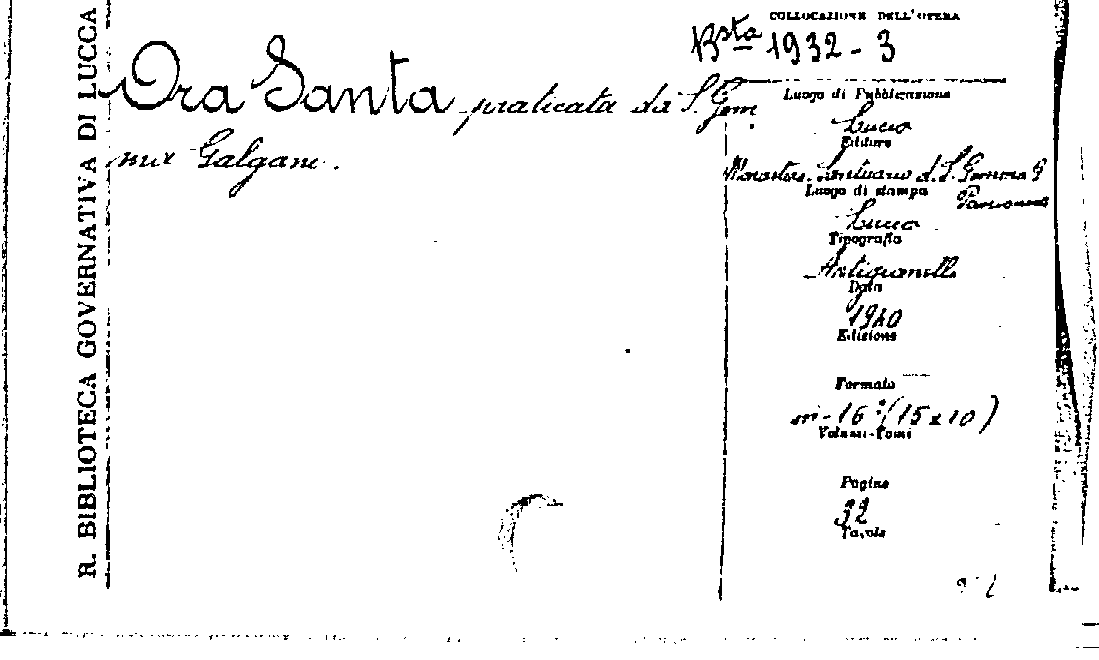 R. BIBLIOTECA GOVERNATIVA DI LUCCA
Ora Santa praticata da S. Gem
ma Galgani.
COLLOCAZIONE DELL'OPERA
Bsta 1932 - 3
Luogo di Pubblicazione
Lucca
Editore
Monastero Santuario d. S. Gemma G
Luogo di stampa
Lucca
Tipografia
Artigianelli
Data
1940
Edizione
Formato
in-16° (15 x 10)
Volumi-Tomi
Pagine
32
Tavole